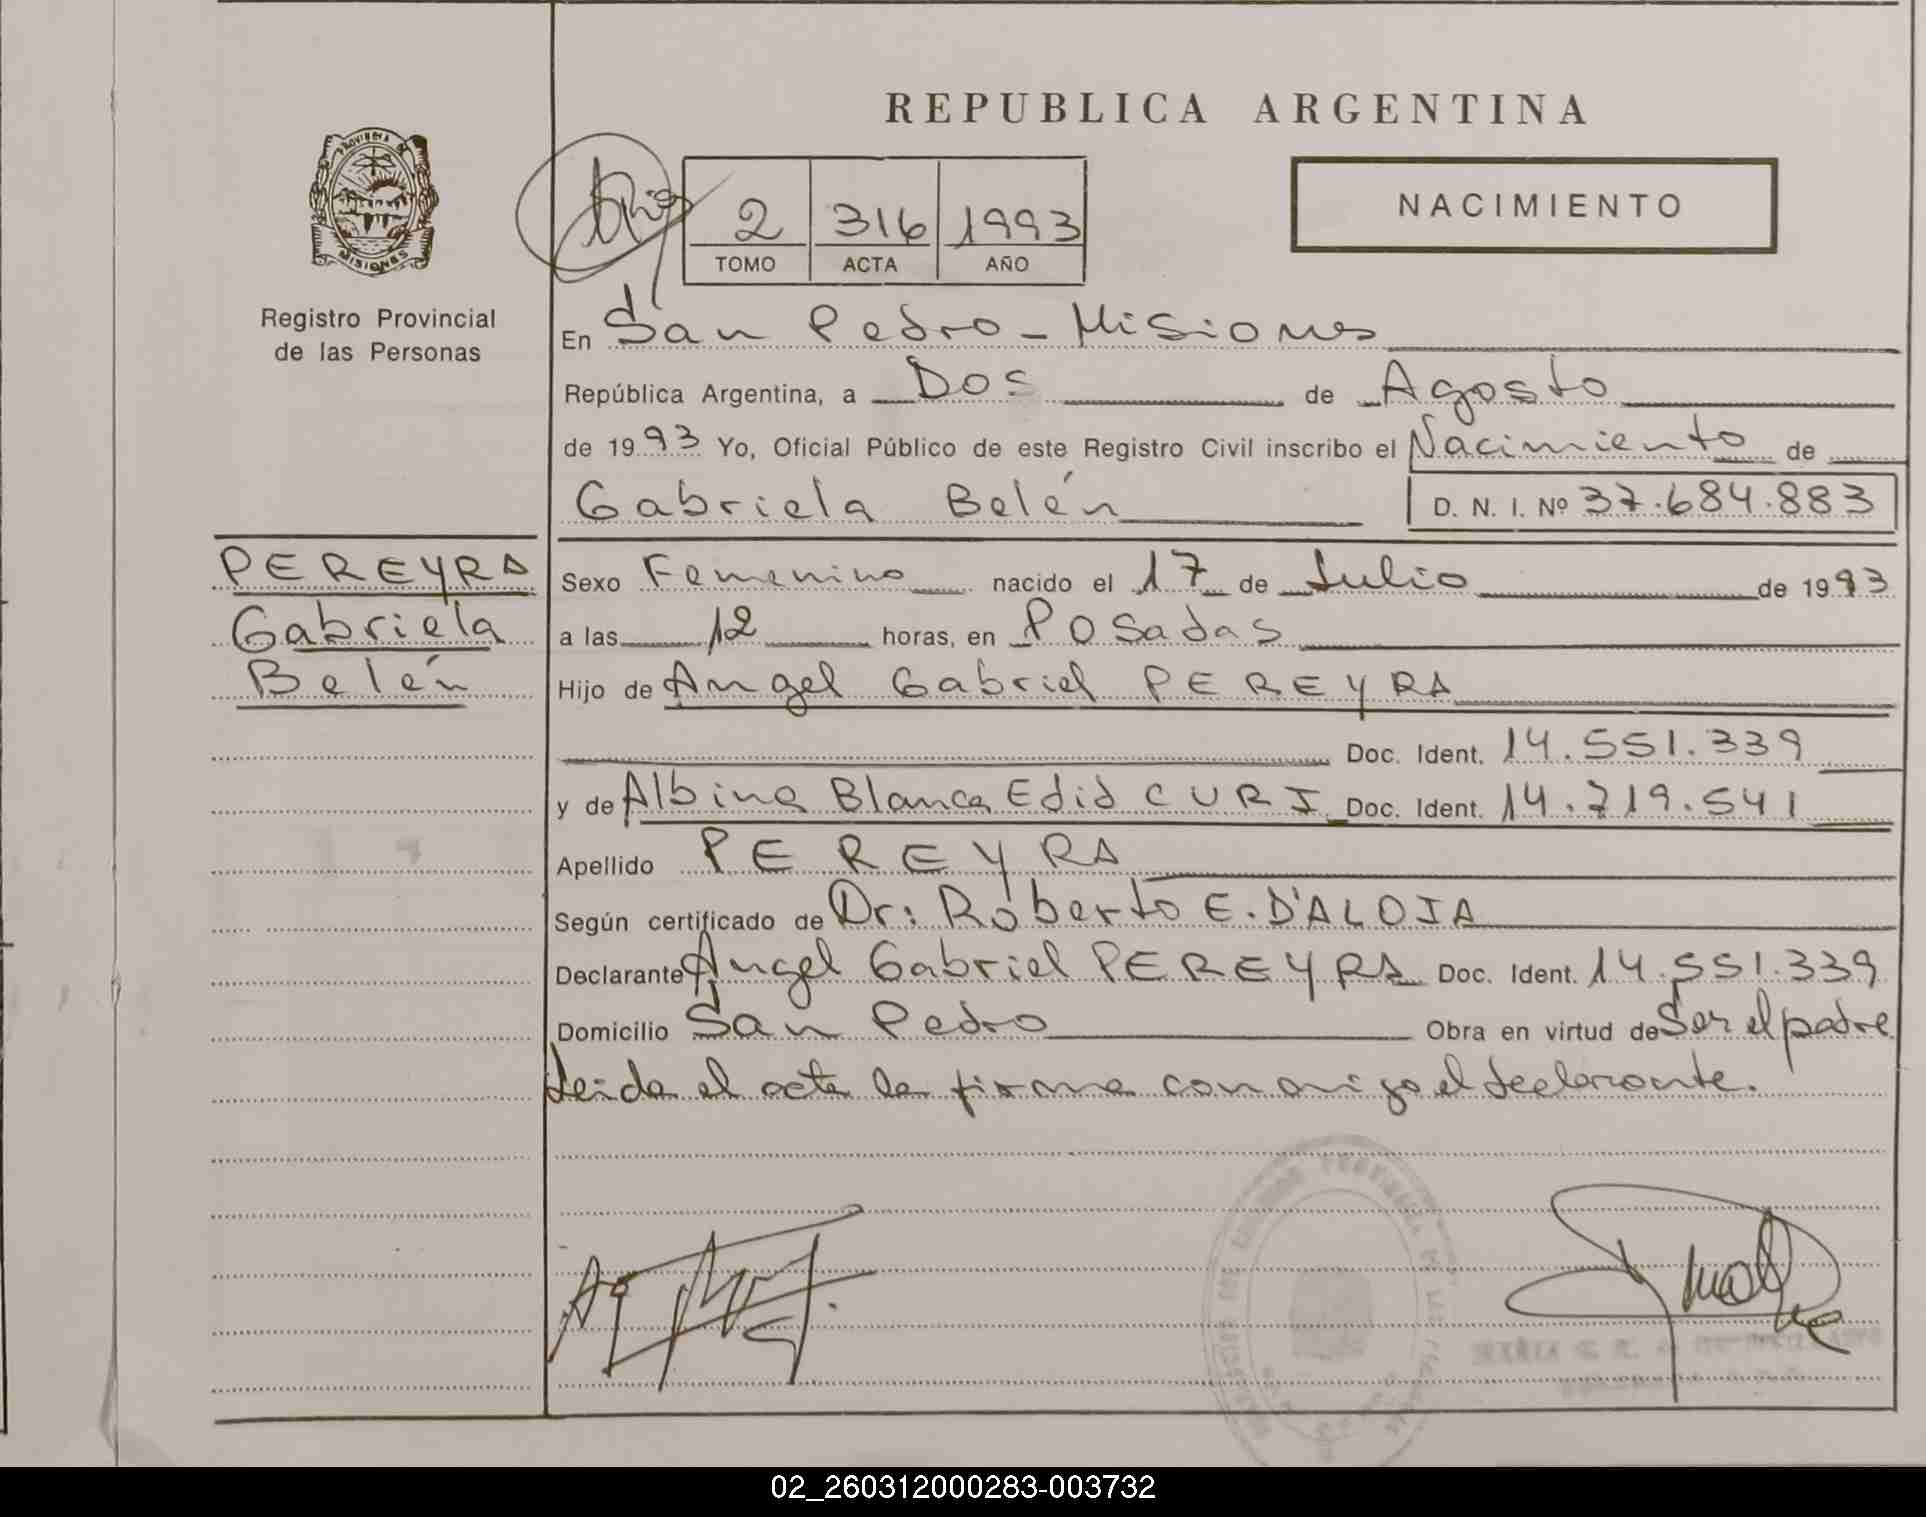 REPUBLICA ARGENTINA
PROVINCIA DE
MISIONES
Registro Provincial
de las Personas
2 316 1993
TOMO ACTA AÑO
NACIMIENTO
En San Pedro - Misiones
República Argentina, a Dos de Agosto
de 1993 Yo, Oficial Público de este Registro Civil inscribo el Nacimiento de
Gabriela Belén D. N. I. Nº 37.684.883
PEREYRA
Gabriela
Belén
Sexo Femenino nacido el 17 de Julio de 1993
a las 12 horas, en Posadas
Hijo de Angel Gabriel PEREYRA
Doc. Ident. 14.551.339
y de Albina Blanca Edid CURI Doc. Ident. 14.719.541
Apellido PEREYRA
Según certificado de Dr: Roberto E. D'ALOIA
Declarante Angel Gabriel PEREYRA Doc. Ident. 14.551.339
Domicilio San Pedro Obra en virtud de Ser el padre
Leida el acta la firma conmigo el declarante.
02_260312000283-003732